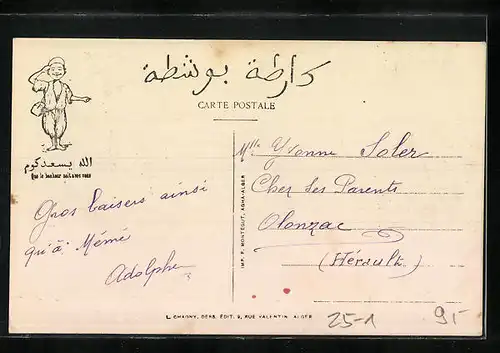 كارطة بوسطة
CARTE POSTALE
الله يسعدكوم
Que le bonheur soit avec vous
Gros baisers ainsi
qu'à Mémé
Adolphe
Mlle Yvonne Soler
Chez Ses Parents
Olonzac
(Hérault)
IMP. F. MONTÉGUT, AGHA-ALGER
L. CHAGNY, DÉRS. ÉDIT. 9, RUE VALENTIN ALGER
25-1
91-